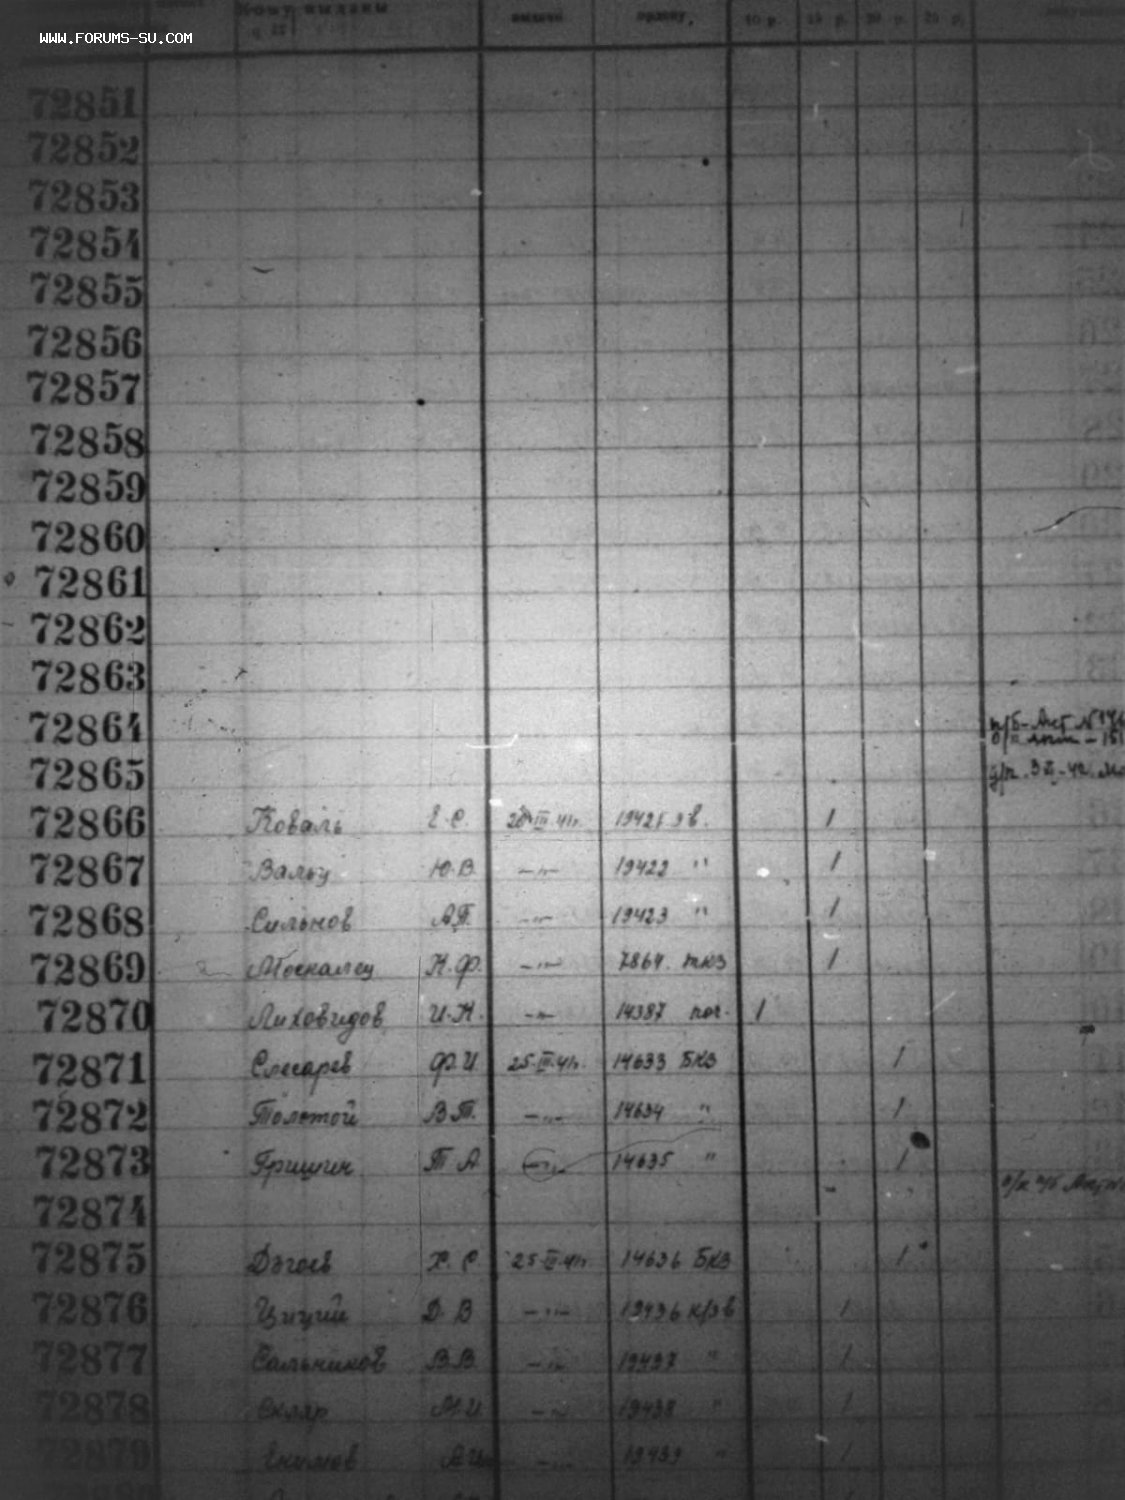 WWW.FORUMS-SU.COM
Кому выданы
10 р. 15 р. 20 р. 25 р.
72851
72852
72853
72854
72855
72856
72857
72858
72859
72860
72861
72862
72863
72864
72865
72866 Коваль Е.С. 19421 зв. 1
72867 Ю.В. —"— 19422 " 1
72868 Сильнов А.П. —"— 19423 " 1
72869 Москалец Н.Ф. —"— 7864 ткз 1
72870 Лиховидов И.Н. —"— 14387 1
72871 Слесарев Ф.И. 25.III.41г. 14633 БКЗ 1
72872 Толстой В.П. —"— 14634 " 1
72873 Гришин Т.А. —"— 14635 " 1
72874
72875 Дзгоев Х.С. 25.III.41г. 14636 БКЗ 1
72876 Д.В. —"— 19436 к/зв 1
72877 Сальников В.В. —"— 19437 " 1
72878 Скляр —"— 19438 " 1
72879 Екимов —"— 19439 " 1